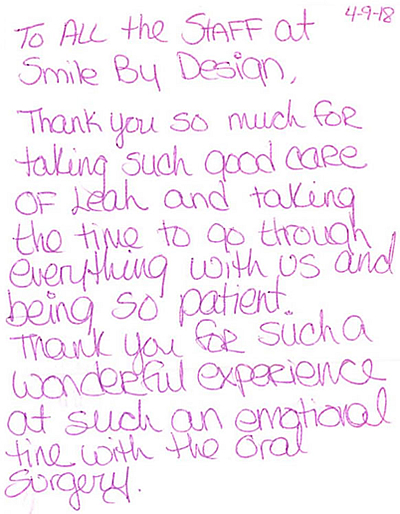 4-9-18
To ALL the STAFF at
Smile By Design,
Thank you so much for
taking such good care
OF Leah and taking
the time to go through
everything with us and
being so patient.
Thank you for such a
wonderful experience
at such an emotional
time with the oral
surgery.